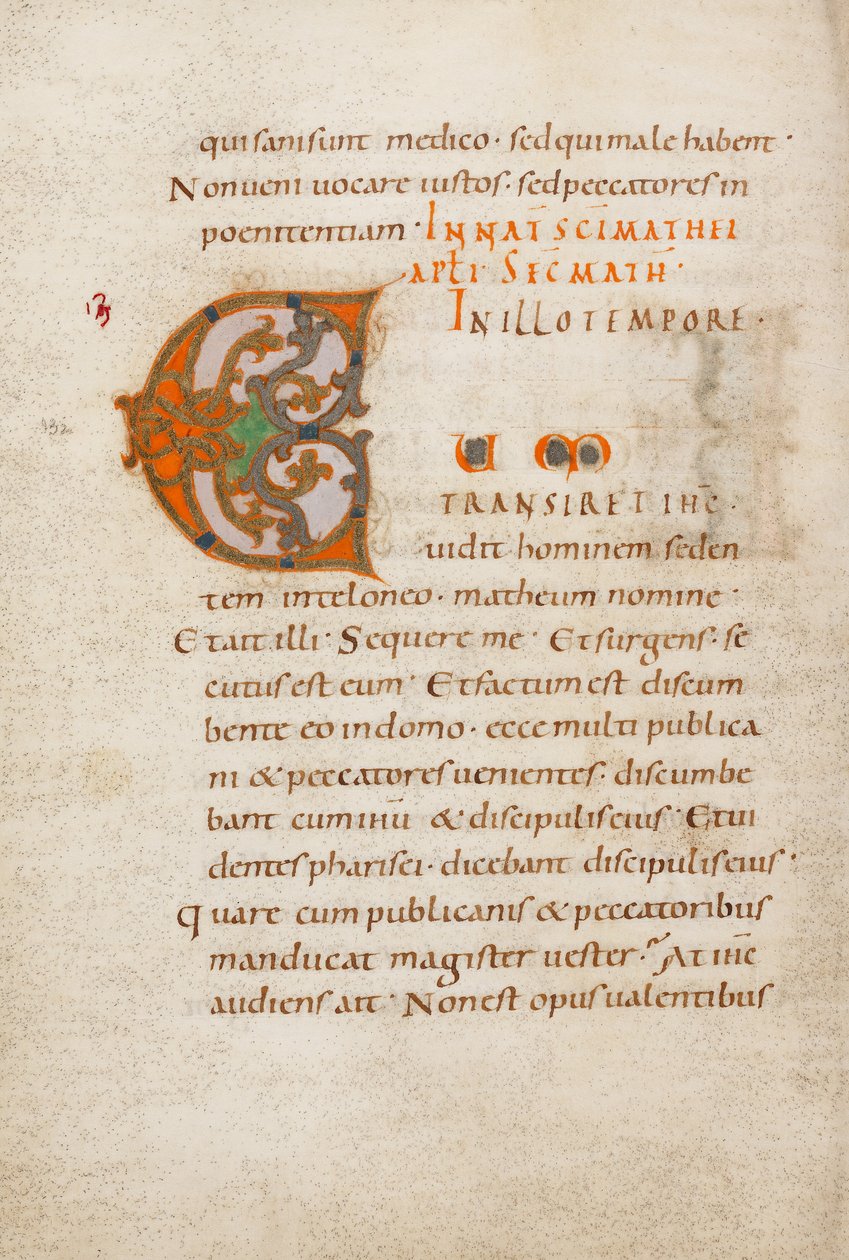 qui sani sunt medico· sed qui male habent·
Non ueni uocare iustos· sed peccatores in
poenitentiam· IN NAT̄ SC̄I MATHEI
APŁI· SEC̄ MATH̄·
IN ILLO TEMPORE·
C U M
TRANSIRET IHC̄·
uidit hominem seden
tem in teloneo· matheum nomine·
Et ait illi· Sequere me· Et surgens· se
cutus est eum· Et factum est discum
bente eo in domo· ecce multi publica
ni & peccatores uenientes· discumbe
bant cum ihū & discipulis eius· Et ui
dentes pharisei· dicebant discipulis eius·
Quare cum publicanis & peccatoribus
manducat magister uester· At ihc̄
audiens ait· Non est opus ualentibus
132